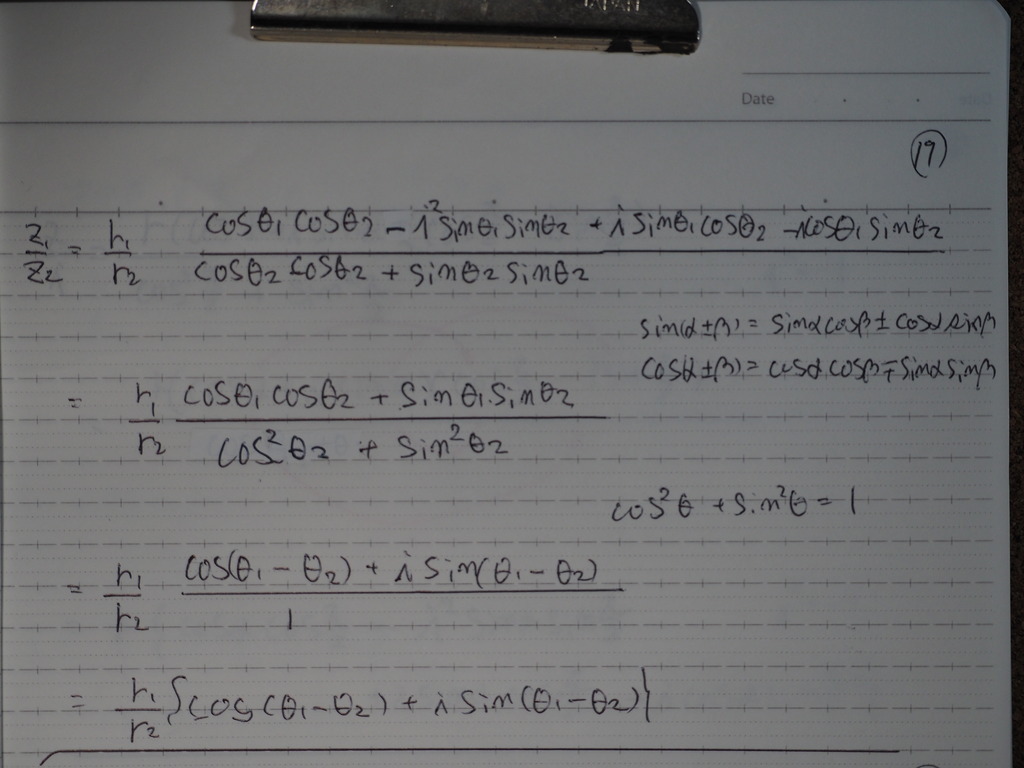 JAPAN
Date
19
z₁/z₂ = r₁/r₂ (cosθ₁ cosθ₂ - i² sinθ₁ sinθ₂ + i sinθ₁ cosθ₂ - i cosθ₁ sinθ₂)/(cosθ₂ cosθ₂ + sinθ₂ sinθ₂)
sin(α±β) = sinα cosβ ± cosα sinβ
cos(α±β) = cosα cosβ ∓ sinα sinβ
= r₁/r₂ (cosθ₁ cosθ₂ + sinθ₁ sinθ₂)/(cos²θ₂ + sin²θ₂)
cos²θ + sin²θ = 1
= r₁/r₂ (cos(θ₁ - θ₂) + i sin(θ₁ - θ₂))/1
= r₁/r₂ {cos(θ₁ - θ₂) + i sin(θ₁ - θ₂)}